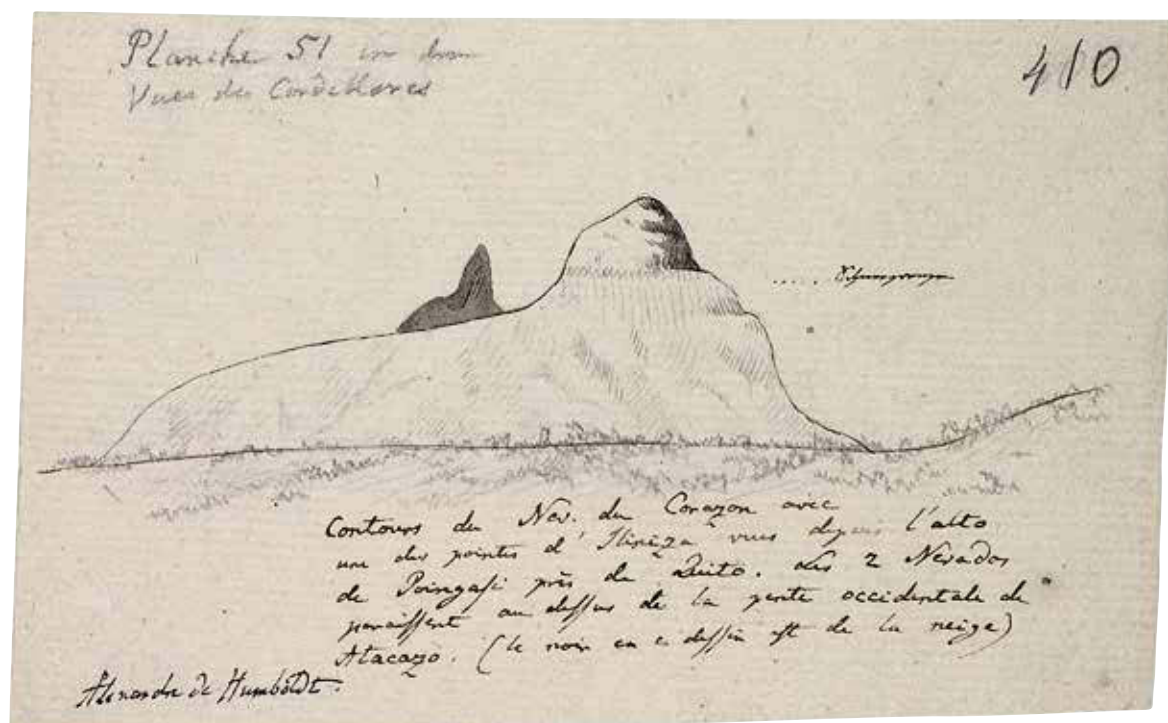 Planche 51 in den
Vues des Cordilleres
410
Schneegrenze
Contours du Nev. du Corazon avec
une des pointes d'Iliniza vues depuis l'alto
de Poingasi près de Quito. Les 2 Nevados
paraissent au dessus de la pente occidentale de
Atacazo. (le noir en ce dessin est de la neige)
Alexandre de Humboldt.